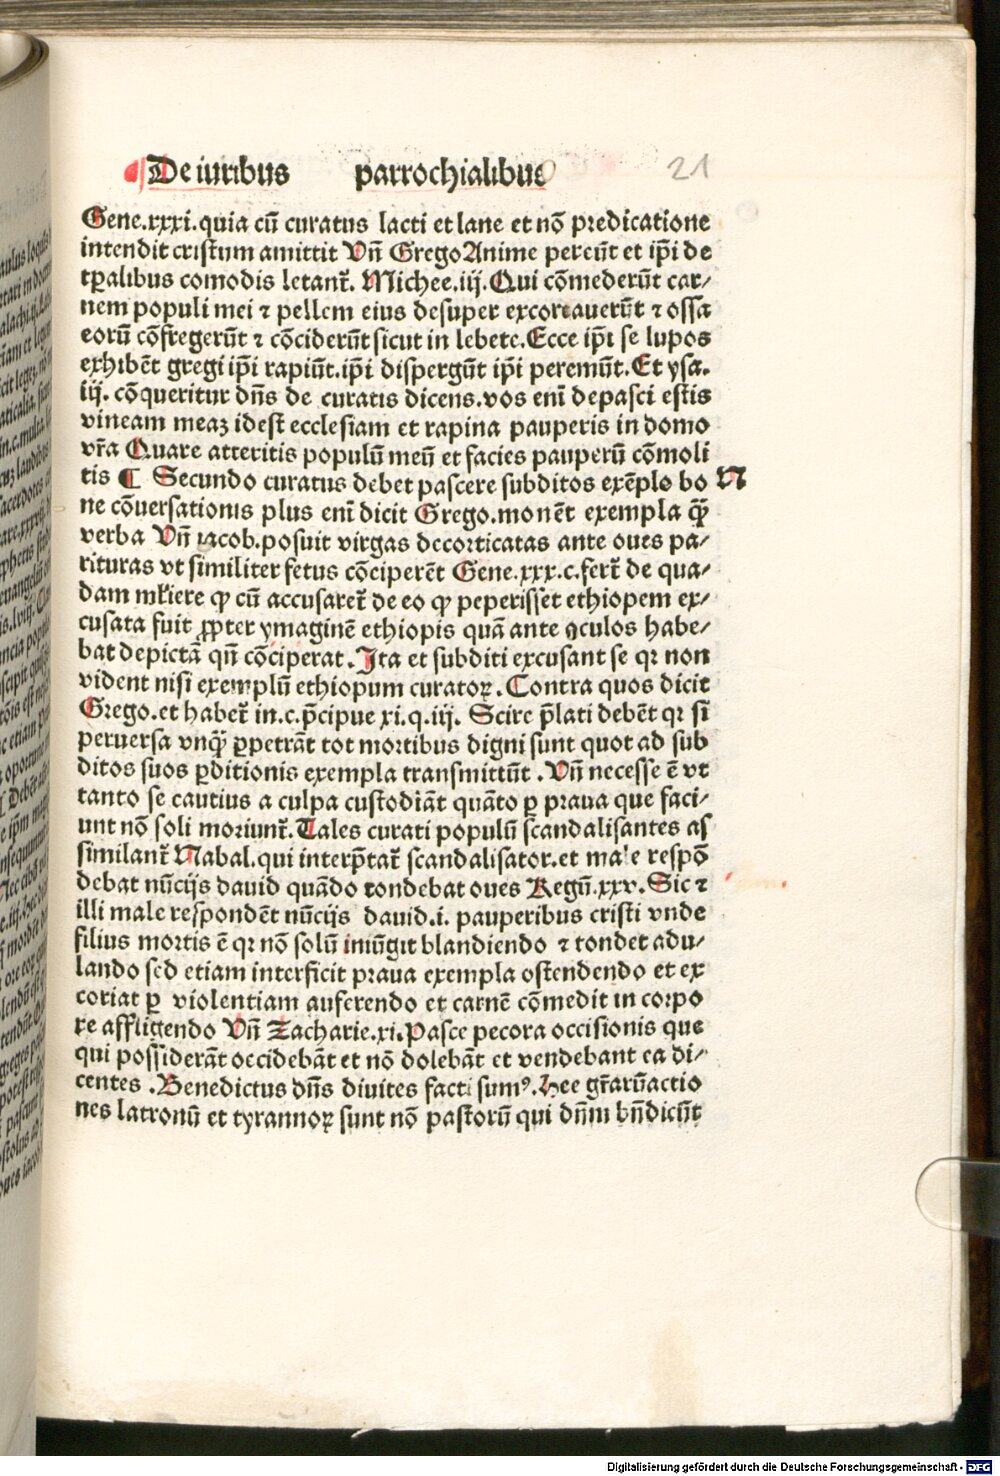 De iuribus parrochialibus
21
Gene.xxxi.quia cū curatus lacti et lane et nō predicatione
intendit cristum amittit Vñ Grego Anime pereūt et ip̄i de
tp̄alibus comodis letant᷑. Michee.iij. Qui cōmederūt car⸗
nem populi mei ⁊ pellem eius desuper excoriauerūt ⁊ ossa
eorū cōfregerūt ⁊ cōciderūt sicut in lebete.Ecce ip̄i se lupos
exhibēt gregi ip̄i rapiūt.ip̄i dispergūt ip̄i peremūt.Et ysa.
iij. cōqueritur dn̄s de curatis dicens.vos enī depasci estis
vineam meaꝫ idest ecclesiam et rapina pauperis in domo
vr̄a Quare atteritis populū meū et facies pauperū cōmoli
tis ¶ Secundo curatus debet pascere subditos exēplo bo N
ne cōuersationis plus enī dicit Grego.monēt exempla q̄ꝫ
verba Vñ iacob.posuit virgas decorticatas ante oues pa⸗
rituras vt similiter fetus cōciperēt Gene.xxx.c.fert᷑ de qua⸗
dam mĺiere ꝙ cū accusaret᷑ de eo ꝙ peperisset ethiopem ex⸗
cusata fuit ꝓpter ymaginē ethiopis quā ante oculos habe⸗
bat depictā qn̄ cōciperat. Ita et subditi excusant se qꝛ non
vident nisi exemplū ethiopum curatoꝝ. Contra quos dicit
Grego.et habet᷑ in.c.p̄cipue xi.q.iij. Scire p̄lati debēt qꝛ si
peruersa vnq̄ꝫ ꝑpetrāt tot mortibus digni sunt quot ad sub
ditos suos ꝑditionis exempla transmittūt .Vñ necesse ē vt
tanto se cautius a culpa custodiāt quāto ꝑ praua que faci⸗
unt nō soli moriunt᷑.Tales curati populū scandalisantes as
similant᷑ Nabal.qui interp̄tat᷑ scandalisator.et male respō
debat nūcijs dauid quādo tondebat oues Regū.xxv.Sic ⁊
illi male respondēt nūcijs dauid.i. pauperibus cristi vnde
filius mortis ē qꝛ nō solū iniūgit blandiendo ⁊ tondet adu⸗
lando sed etiam interficit praua exempla ostendendo et ex
coriat ꝑ violentiam auferendo et carnē cōmedit in corpo
re affligendo Vñ Zacharie.xi.Pasce pecora occisionis que
qui possiderāt occidebāt et nō dolebāt et vendebant ea di⸗
centes .Benedictus dn̄s diuites facti sumꝰ.Hee gr̄arūactio
nes latronū et tyrannoꝝ sunt nō pastorū qui dn̄m bn̄dicūt
Digitalisierung gefördert durch die Deutsche Forschungsgemeinschaft - DFG